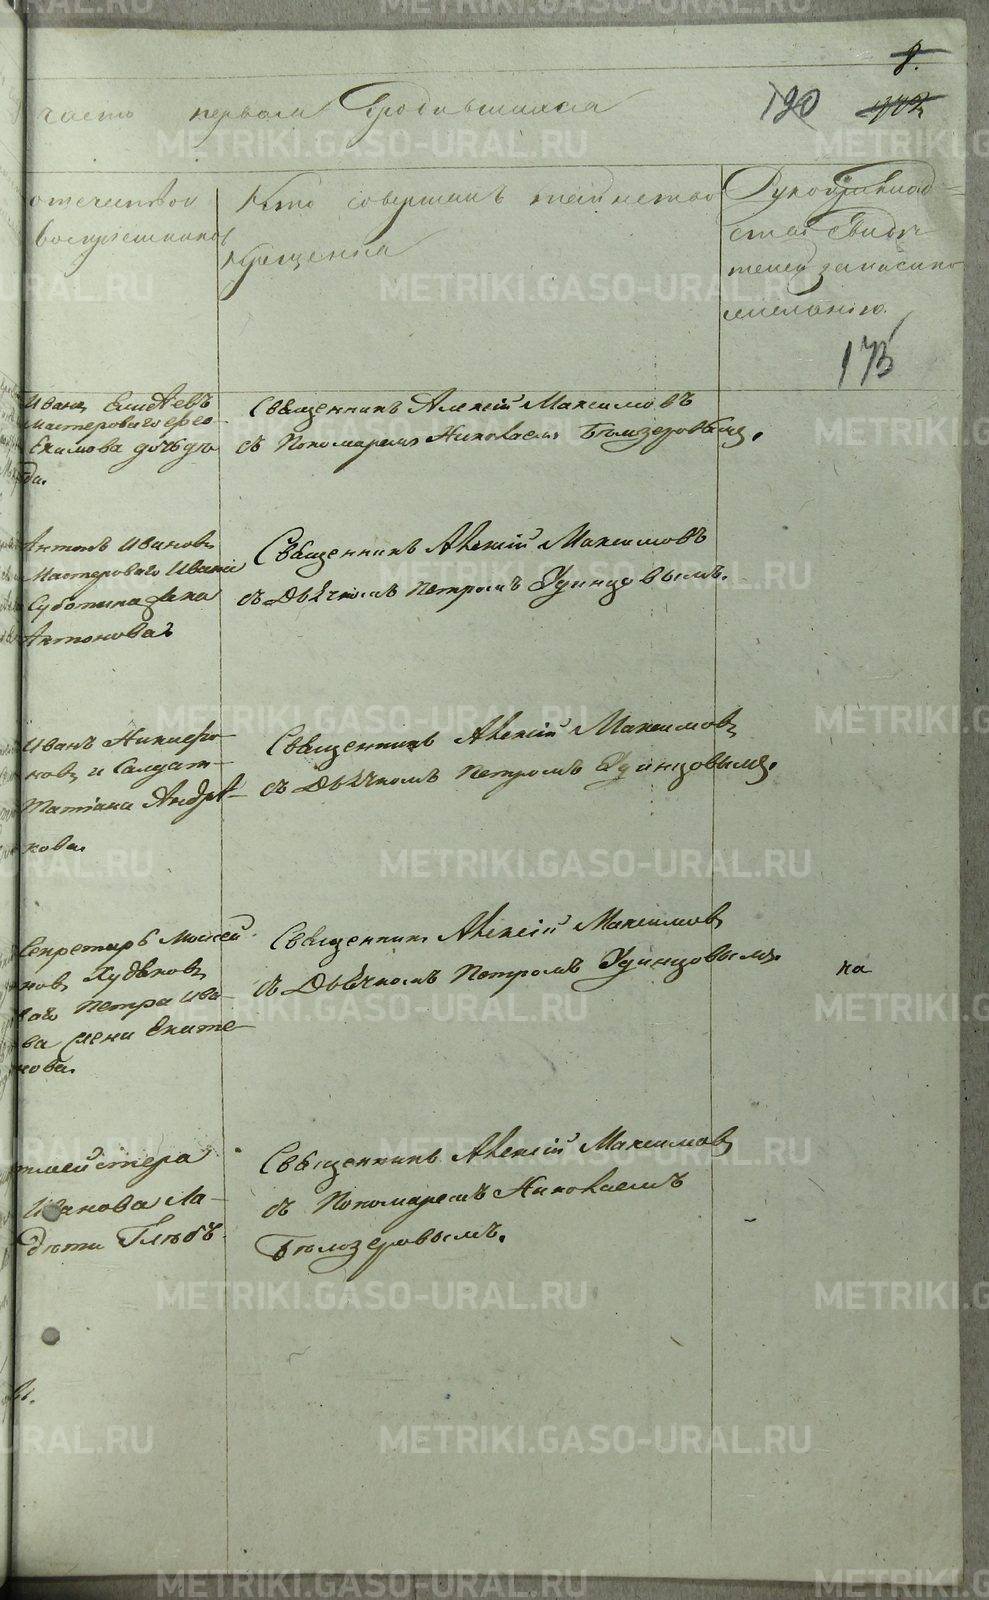 8.
часть первая о родившихся
190
отечество и
воспріемниковъ
Кто совершалъ таинство
крещенія
Рукоприклад-
ство свидѣ-
телей записи по
желанію.
173
Иванъ Елисѣевъ
мастероваго
Екимова дочь дѣ-
да.
Священникъ Алексій Максимовъ
съ Пономаремъ Николаемъ Бѣлозеровымъ.
Антонъ Ивановъ
Мастероваго Ивана
Суботина жена
Антонова
Священникъ Алексій Максимовъ
съ Дьячкомъ Петромъ Удинцовымъ.
Иванъ Никифо-
ровъ и Салдат-
Татіана Андрѣ-
кова.
Священникъ Алексій Максимовъ
съ Дьячкомъ Петромъ Удинцовымъ.
Секретарь Моисей
новъ Худяковъ
ваго Петра Ива-
ва жена Екате-
нова.
Священникъ Алексій Максимовъ
съ Дьячкомъ Петромъ Удинцовымъ.
на
тмейстера
Иванова Ла-
дѣти Глѣбъ
Священникъ Алексій Максимовъ
съ Пономаремъ Николаемъ
Бѣлозеровымъ.
METRIKI.GASO-URAL.RU